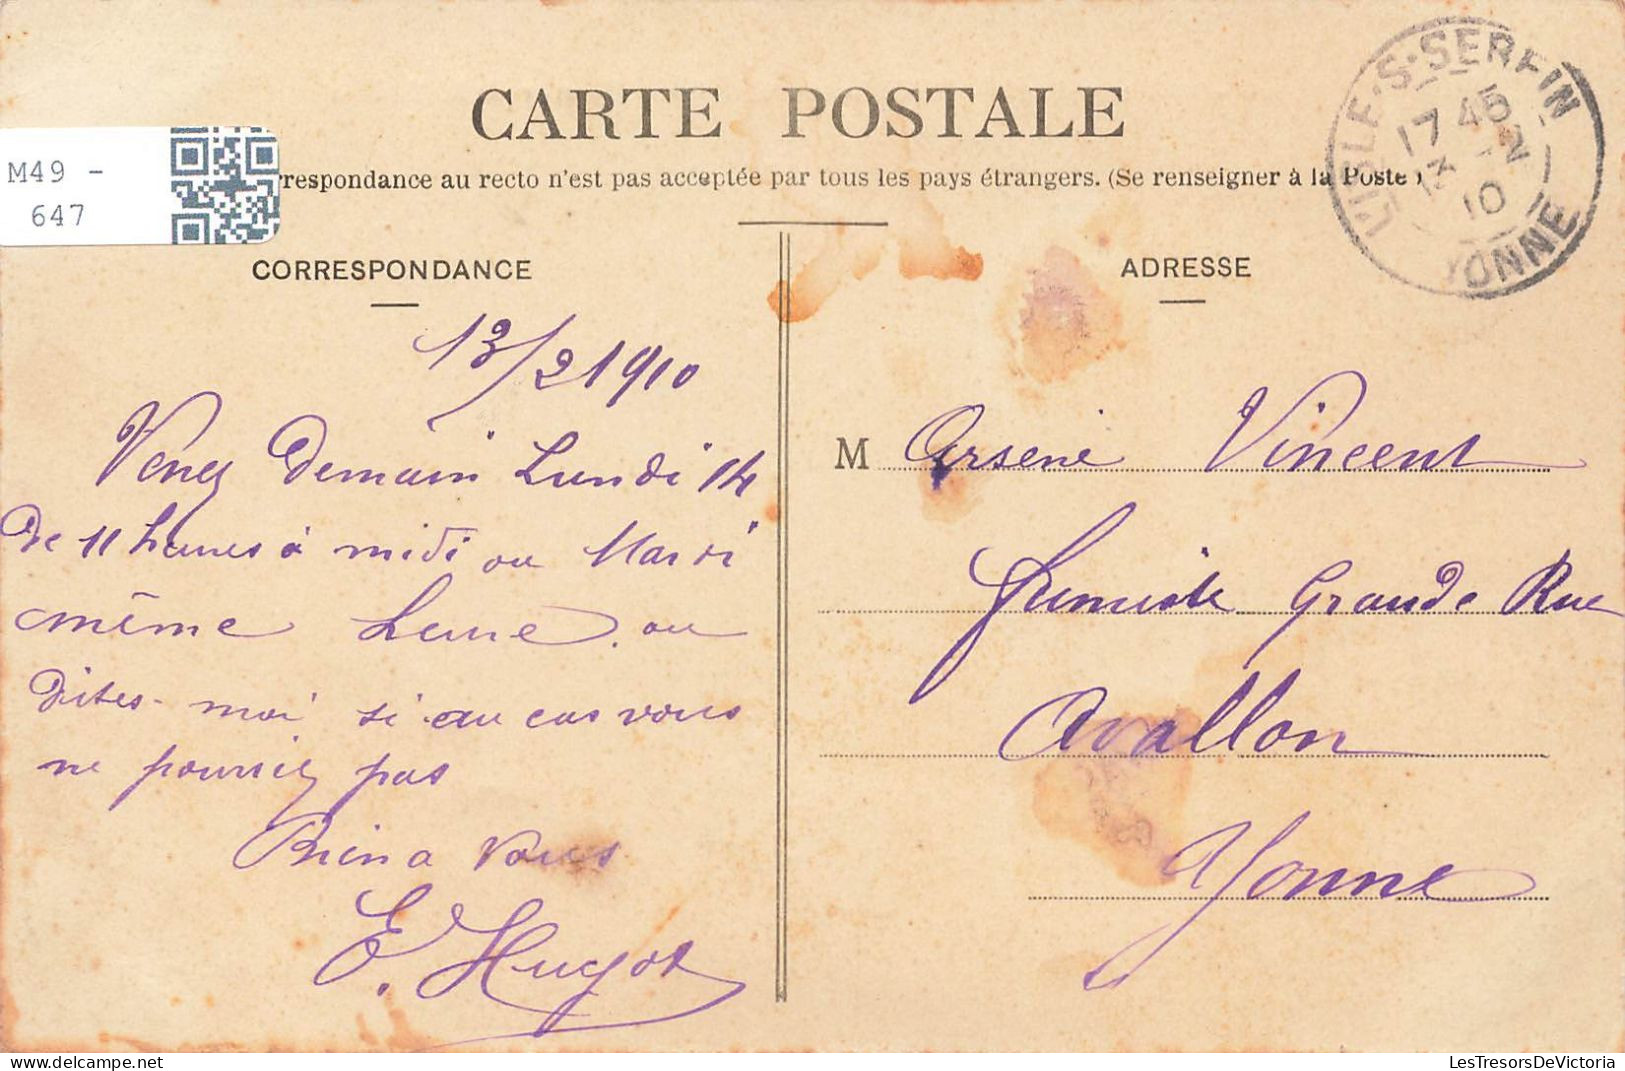 CARTE POSTALE
respondance au recto n'est pas acceptée par tous les pays étrangers. (Se renseigner à la Poste)
M49 -
647
L'ISLE-S-SEREIN
17 45
13 -2
10
YONNE
CORRESPONDANCE
13/2 1910
Venez Demain Lundi 14
De 11 heures à midi ou Mardi
même heure, ou
dites-moi si au cas vous
ne pourriez pas
Bien a vous
E. Hugot
ADRESSE
M Arsene Vincent
fumiste Grande Rue
Avallon
Yonne
LesTresorsDeVictoria